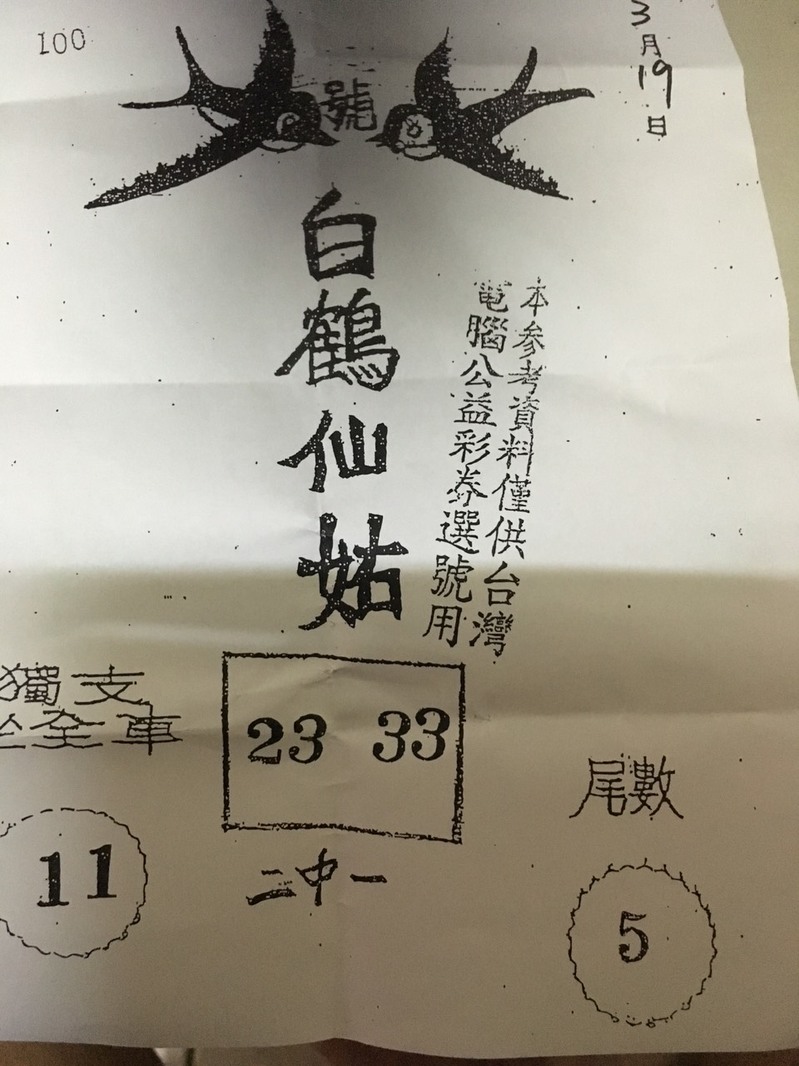 100
3月19日
號
白鶴仙姑
本參考資料僅供台灣
電腦公益彩券選號用
獨支
坐全車
23 33
11
二中一
尾數
5